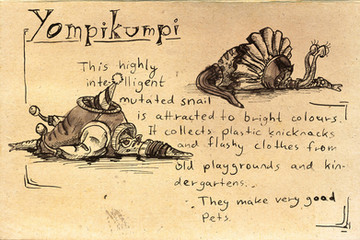 Yompikumpi
This highly
intelligent
mutated snail
is attracted to bright colours.
It collects plastic knicknacks
and flashy clothes from
old playgrounds and kin-
dergartens.
They make very good
Pets.